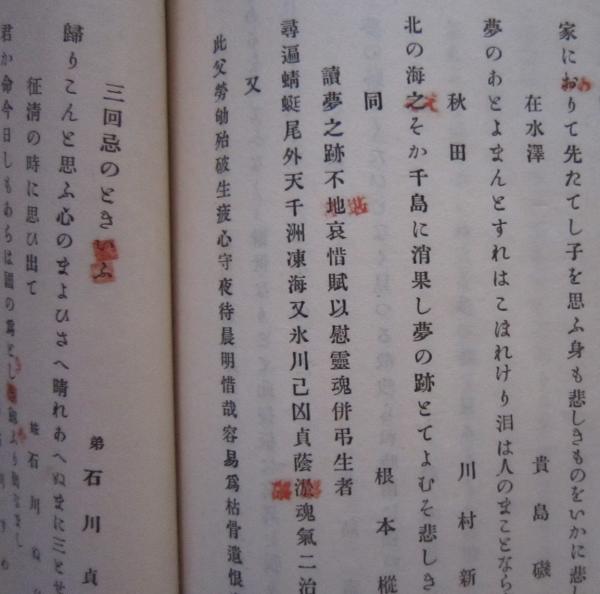 家におりて先たてし子を思ふ身も悲しきものをいかに悲し
在水澤　貴島磯
夢のあとよまんとすれはこほれけり泪は人のまことなら
秋田　川村新
北の海之そか千島に消果し夢の跡とてよむそ悲しき
同　根本樅
讀夢之跡不地哀惜賦以慰靈魂併弔生者
尋遍蜻蜓尾外天千洲凍海又氷川己凶貞蔭魂氣二治
又
此父勞劬殆破生疲心守夜待晨明惜哉容易爲枯骨遺恨
三回忌のときいふ
弟　石川貞
歸りこんと思ふ心のまよひさへ晴れあへぬまに三とせ
征清の時に思ひ出て
石川
君か命今日しもあらは國の爲とし